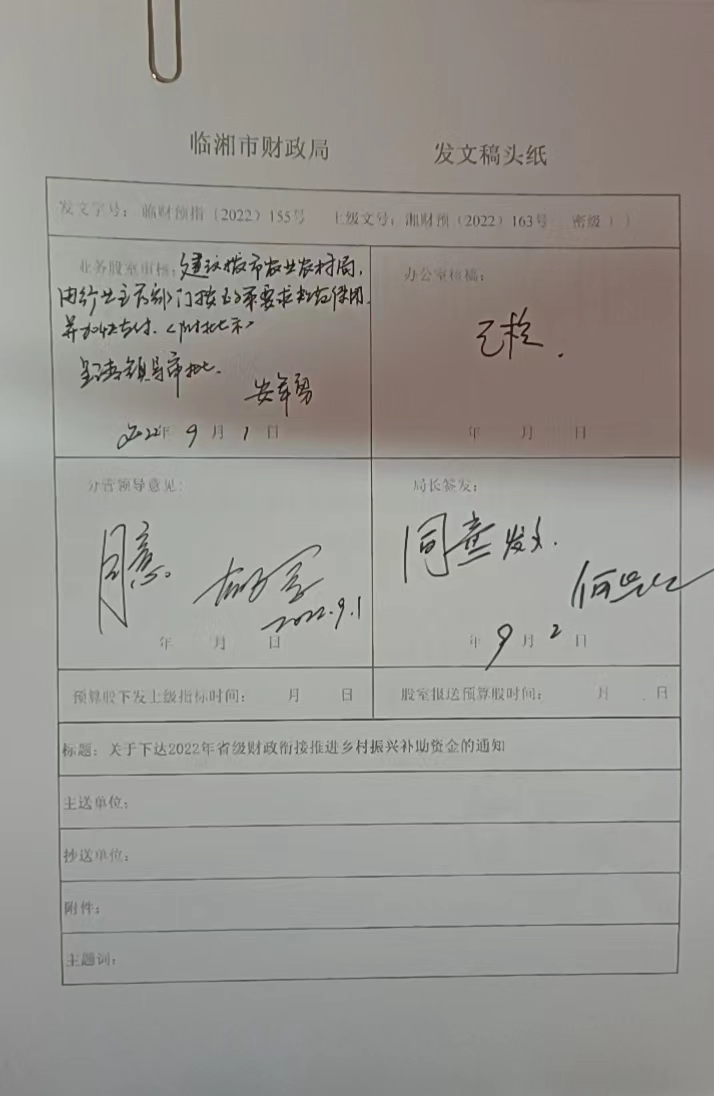 临湘市财政局 发文稿头纸
发文字号：临财预指（2022）155号 上级文号：湘财预（2022）163号 密级（ ）
业务股室审核：建议拨市农业农村局，
由行业主管部门按政策要求规范使用，
并加快支付.（附批示）
呈请领导审批.
安军勇
2022年 9 月 1 日
办公室核稿：
已核.
年 月 日
分管领导意见：
同意.
2022.9.1
年 月 日
局长签发：
同意发文.
年 9 月 2 日
预算股下发上级指标时间： 月 日
股室报送预算股时间： 月 日
标题：关于下达2022年省级财政衔接推进乡村振兴补助资金的通知
主送单位：
抄送单位：
附件：
主题词：